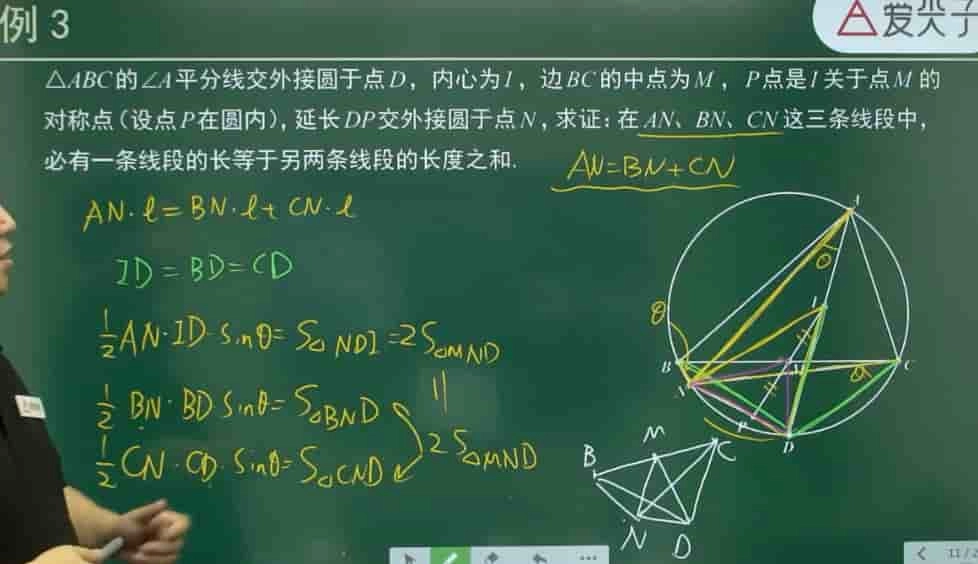 例 3
爱尖子
△ABC的∠A平分线交外接圆于点D，内心为I，边BC的中点为M，P点是I关于点M的
对称点（设点P在圆内），延长DP交外接圆于点N，求证：在AN、BN、CN这三条线段中，
必有一条线段的长等于另两条线段的长度之和.
AN=BN+CN
AN·l=BN·l+CN·l
ID=BD=CD
1/2 AN·ID·sinθ=S△NDI=2S△MND
1/2 BN·BD sinθ=S△BND
1/2 CN·CD·sinθ=S△CND
=
2S△MND
θ
θ
B
C
θ
I
M
N
P
D
B
M
C
N
D
11 / 2